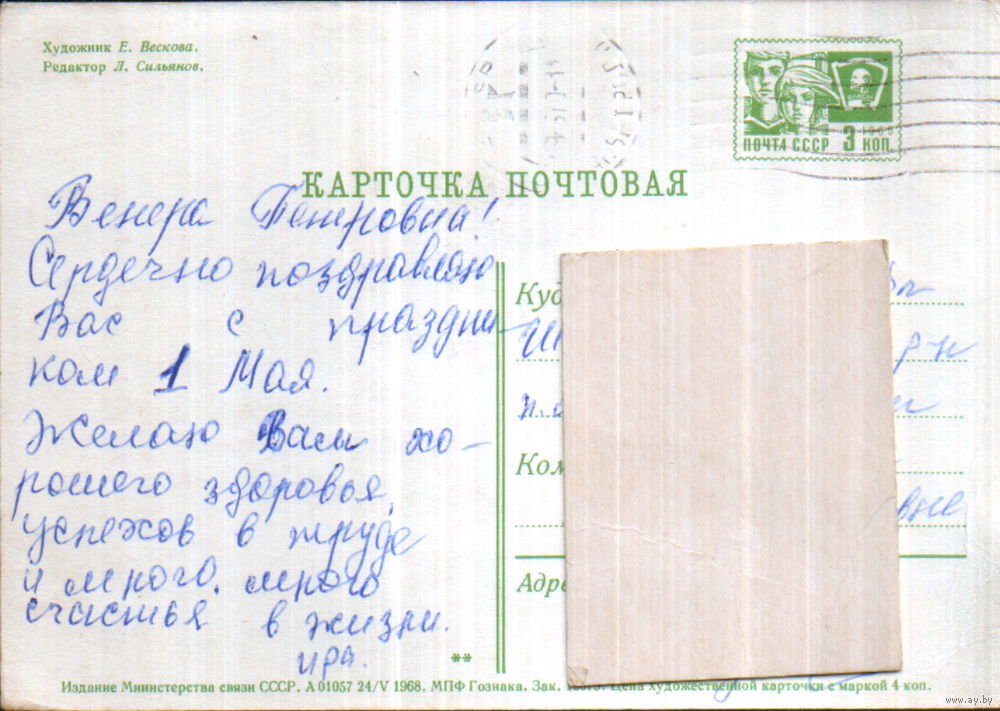 Художник Е. Вескова.
Редактор Л. Сильянов.
ПОЧТА СССР 3 КОП.
КАРТОЧКА ПОЧТОВАЯ
Венера Петровна!
Сердечно поздравляю
Вас с праздни
ком 1 Мая.
Желаю Вам хо-
рошего здоровья,
успехов в труде
и много, много
счастья в жизни.
Ира.
**
Куд
р-н
Ком
вне
Адре
Издание Министерства связи СССР. А 01057 24/V 1968. МПФ Гознака. Зак. Цена художественной карточки с маркой 4 коп.
www.ay.by